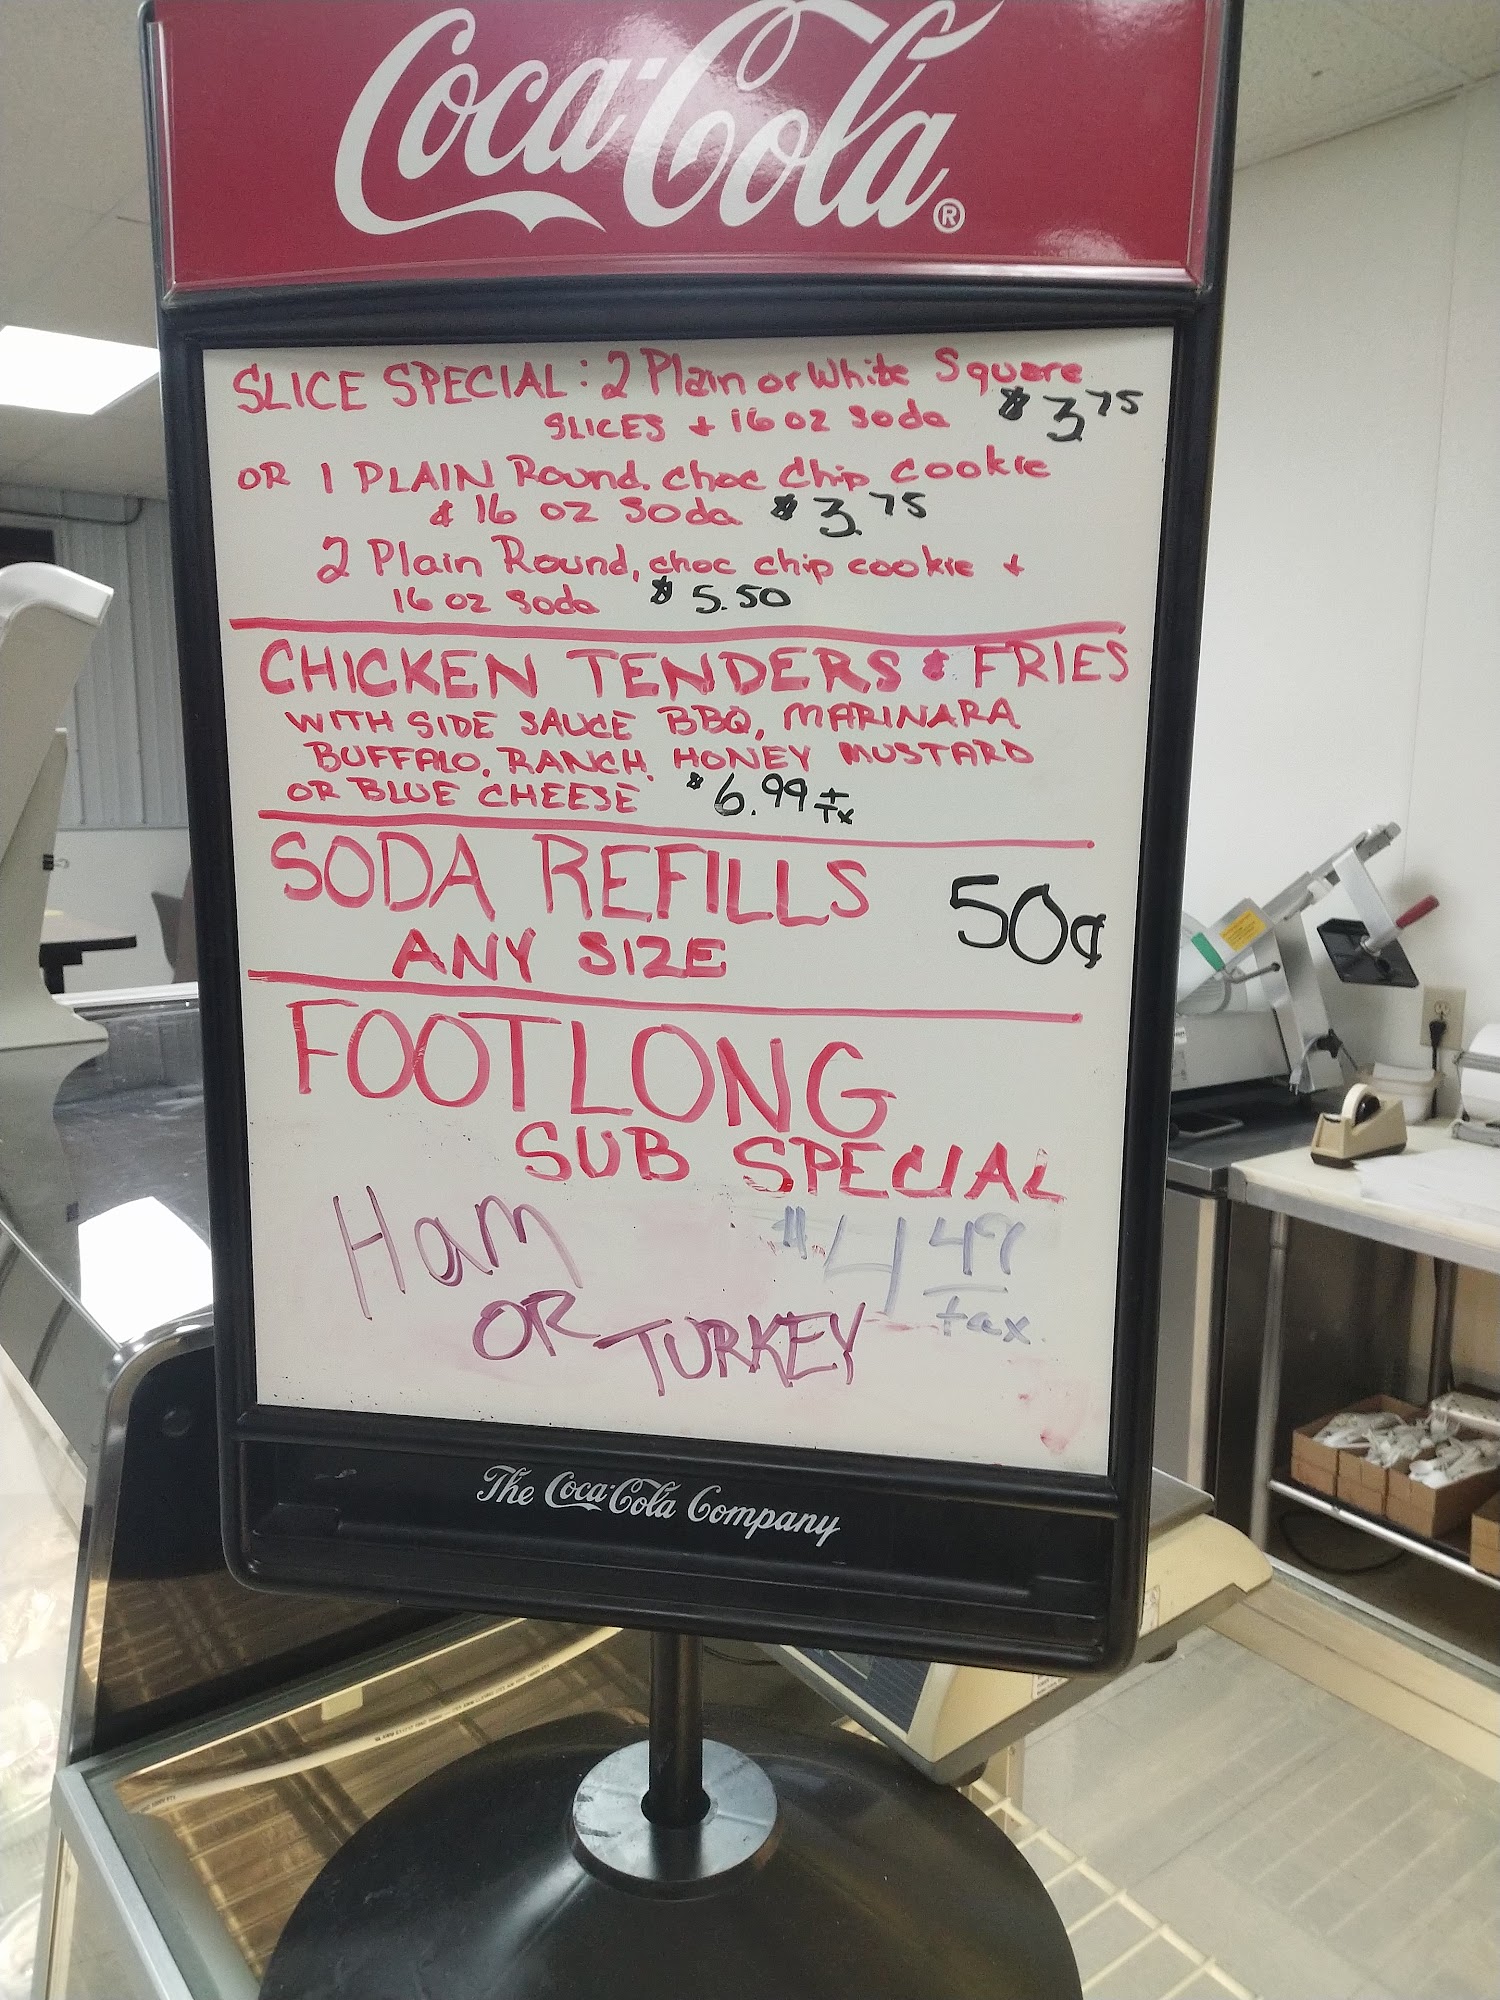 Coca-Cola®
SLICE SPECIAL: 2 Plain or White Square
SLICES + 16 oz Soda $3.75
OR 1 PLAIN Round, choc Chip cookie
& 16 oz Soda $3.75
2 Plain Round, choc chip cookie +
16 oz Soda $5.50
CHICKEN TENDERS & FRIES
WITH SIDE SAUCE BBQ, MARINARA
BUFFALO, RANCH, HONEY MUSTARD
OR BLUE CHEESE $6.99 + Tx
SODA REFILLS 50¢
ANY SIZE
FOOTLONG
SUB SPECIAL
Ham $4.49
OR TURKEY tax
The Coca-Cola Company